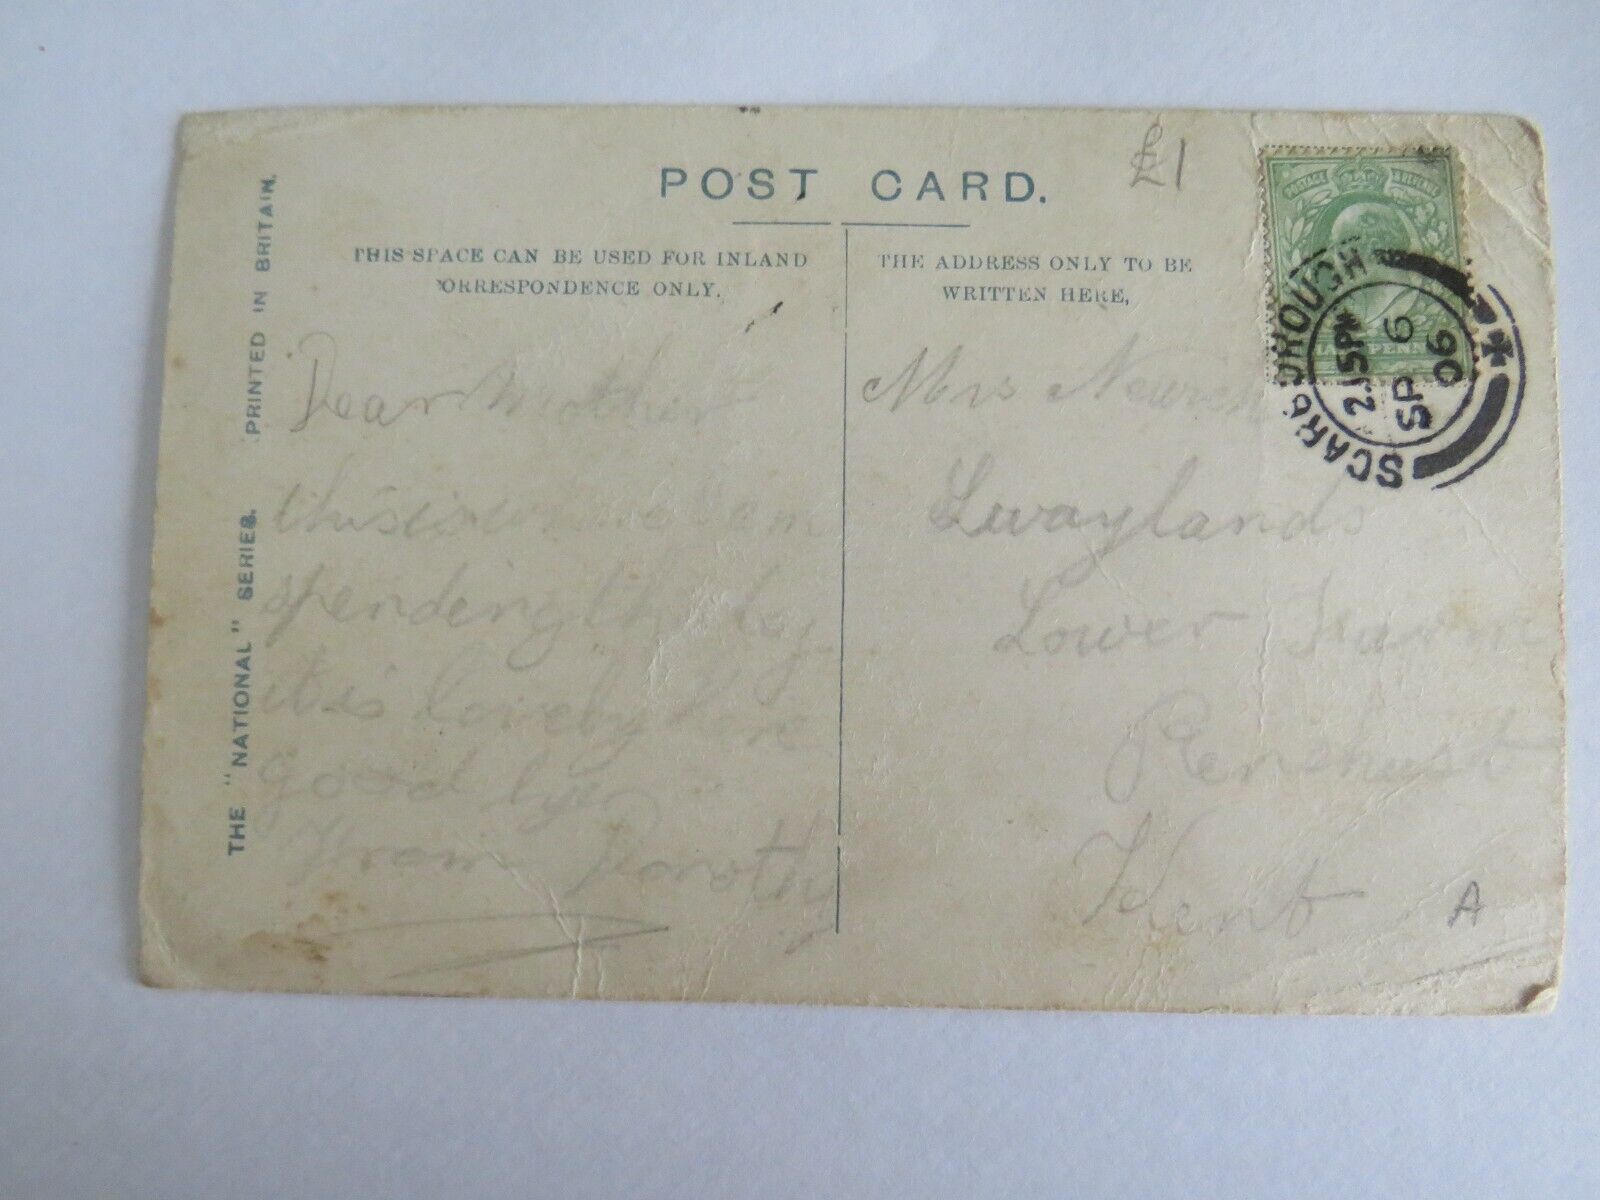 POST CARD.
£1
THIS SPACE CAN BE USED FOR INLAND
ORRESPONDENCE ONLY.
THE ADDRESS ONLY TO BE
WRITTEN HERE,
THE "NATIONAL" SERIES. PRINTED IN BRITAIN.
POSTAGE & REVENUE
HALF PENNY
SCARBOROUGH
2.15PM
SP 6
06
Dear Mother
this is were I am
spending the day
it is lovely here
good bye
From Dorothy
Mrs
Swaylands
Lower Farm
Penshurst
Kent
A